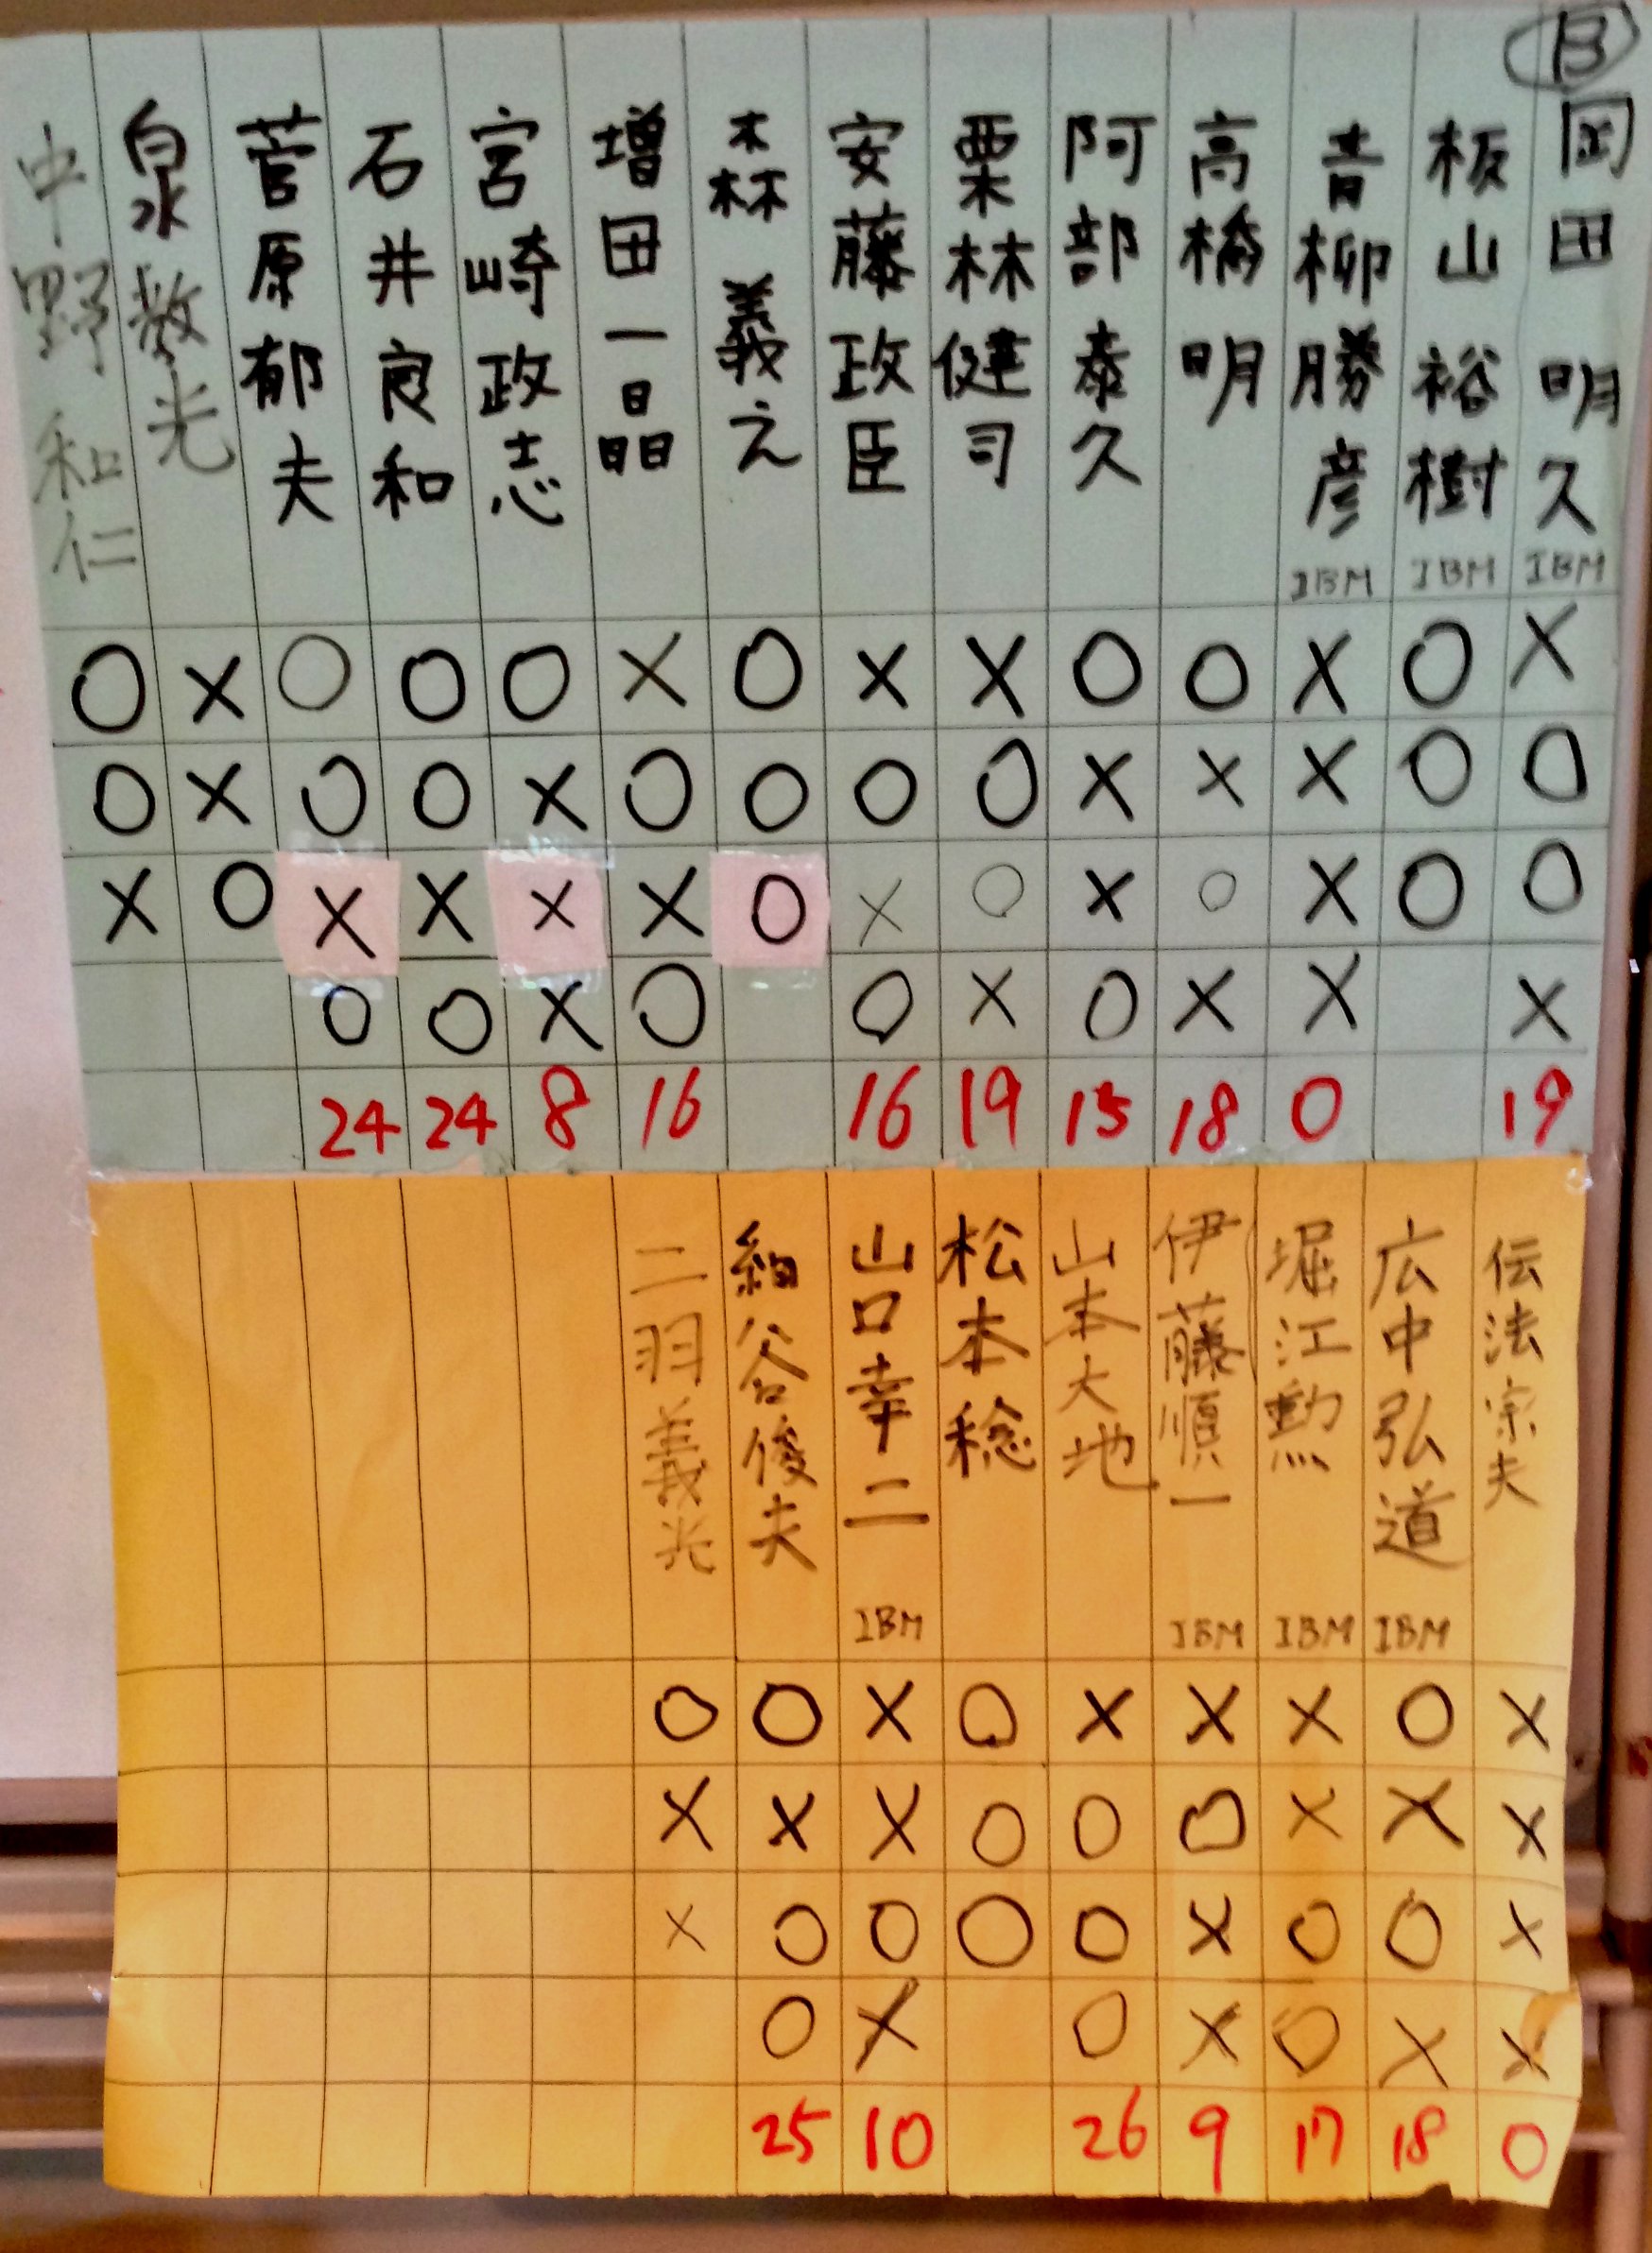 B
岡田 明久 IBM × ○ ○ × 19
板山 裕樹 IBM ○ ○ ○
青柳勝彦 IBM × × × × 0
高橋 明 ○ × ○ × 18
阿部泰久 ○ × × ○ 15
栗林健司 × ○ ○ × 19
安藤政臣 × ○ × ○ 16
森 義之 ○ ○ ○
増田一晶 × ○ × ○ 16
宮崎政志 ○ × × × 8
石井良和 ○ ○ × ○ 24
菅原郁夫 ○ ○ × ○ 24
泉教光 × × ○
中野和仁 ○ ○ ×
伝法宗夫 × × × × 0
広中弘道 IBM ○ × ○ × 18
堀江勲 IBM × × ○ ○ 17
伊藤順一 IBM × ○ × × 9
山本大地 × ○ ○ ○ 26
松本稔 ○ ○ ○
山口幸二 IBM × × ○ × 10
谷俊夫 ○ × ○ ○ 25
二羽義光 ○ × ×